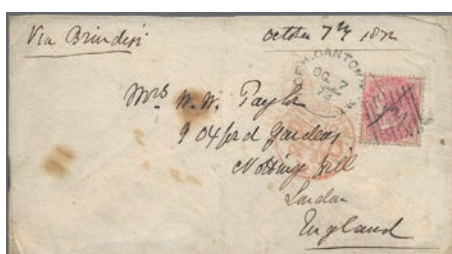 Via Brindisi
October 7th 1872
Mrs W. W. Taylor
9 Oxford Gardens
Notting Hill
London
England
OC 7
72